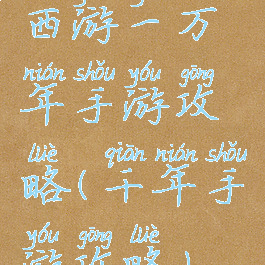 西游一万
nián shǒu yóu gōng
年手游攻
lüè qiān nián shǒu
略(千年手
yóu gōng lüè
游攻略)